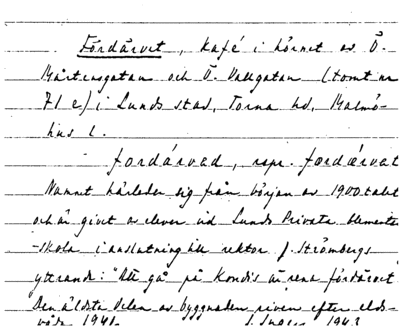 Fördärvet, kafé i hörnet av Ö.
Mårtensgatan och Ö. Vallgatan (tomt nr
71 c) i Lunds stad, Torna hd, Malmö-
hus l.
fordärvad, rspr. fordärvat
Namnet härleder sig från början av 1900 talet
och är givet av elever vid Lunds Privata elementar
-skola i anslutning till rektor J. Strömbergs
yttrande: "Att gå på Kondis är rena fördärvet
Den äldsta delen av byggnaden riven efter elds-
våda 1941. 1943